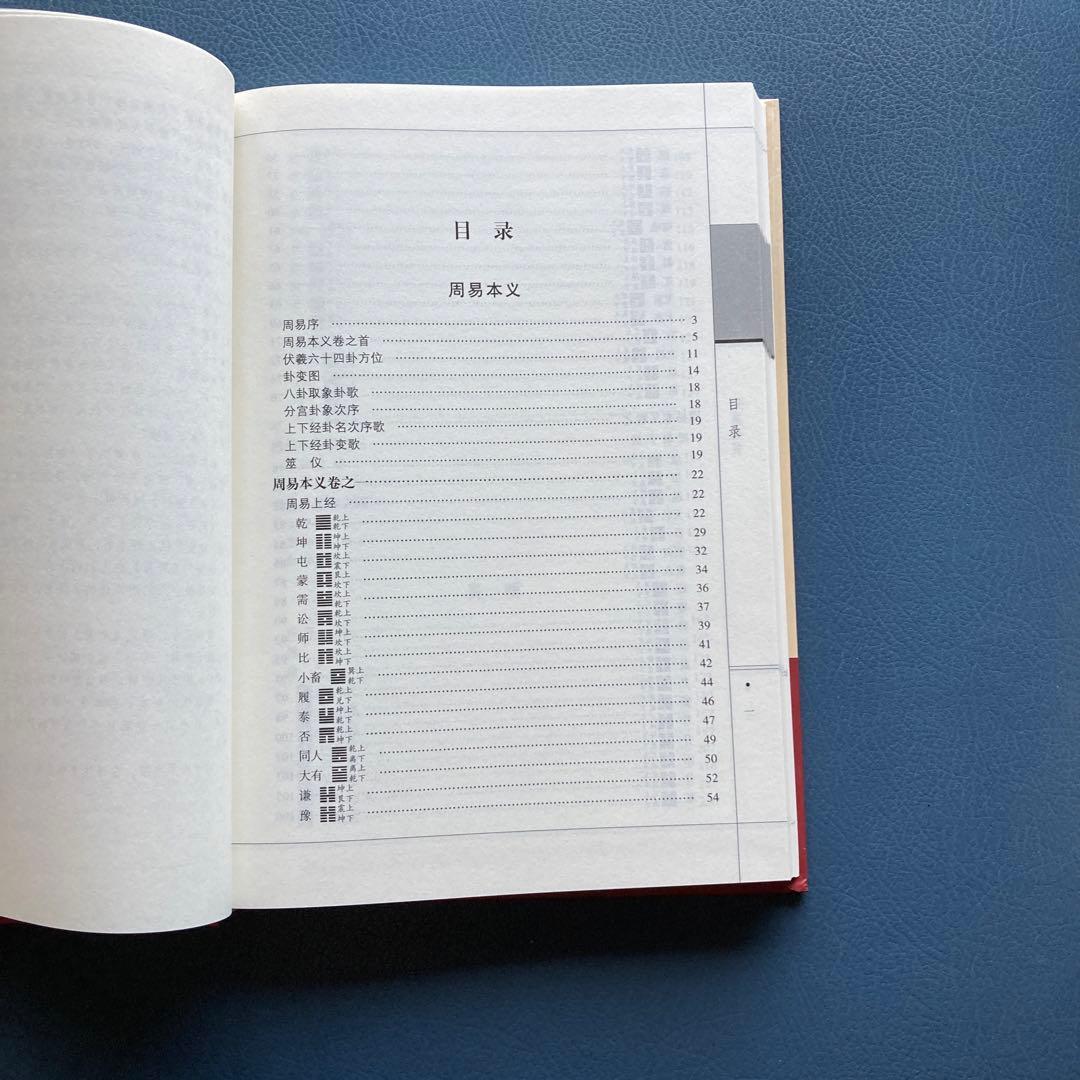 目 录
周易本义
周易序 …… 3
周易本义卷之首 …… 5
伏羲六十四卦方位 …… 11
卦变图 …… 14
八卦取象卦歌 …… 18
分宫卦象次序 …… 18
上下经卦名次序歌 …… 19
上下经卦变歌 …… 19
筮 仪 …… 19
周易本义卷之一 …… 22
周易上经 …… 22
乾 ䷀ 乾上乾下 …… 22
坤 ䷁ 坤上坤下 …… 29
屯 ䷂ 坎上震下 …… 32
蒙 ䷃ 艮上坎下 …… 34
需 ䷄ 坎上乾下 …… 36
讼 ䷅ 乾上坎下 …… 37
师 ䷆ 坤上坎下 …… 39
比 ䷇ 坎上坤下 …… 41
小畜 ䷈ 巽上乾下 …… 42
履 ䷉ 乾上兑下 …… 44
泰 ䷊ 坤上乾下 …… 46
否 ䷋ 乾上坤下 …… 47
同人 ䷌ 乾上离下 …… 49
大有 ䷍ 离上乾下 …… 50
谦 ䷎ 坤上艮下 …… 52
豫 ䷏ 震上坤下 …… 54
目录
• 一